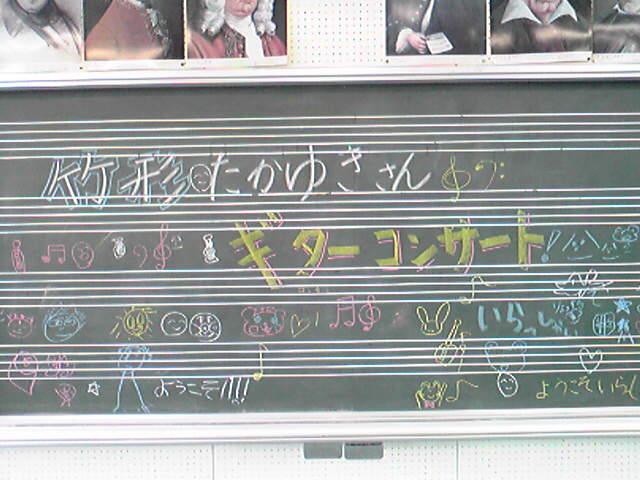 竹形たかゆきさん
ギターコンサート!
いらっしゃい
ようこそ!!!!
ようこそいらし